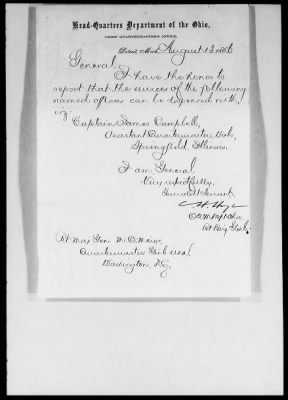 Head-Quarters Department of the Ohio,
CHIEF QUARTERMASTER'S OFFICE,
Detroit, Mich. August 13 1866
General,
I have the honor to
report that the services of the following
named officer can be dispensed with,
viz:
Captain James Campbell,
Assistant Quartermaster, Vols,
Springfield Illinois.
I am General,
Very respectfully,
Servant
Bt Maj Gen M. C. Meigs,
Quartermaster Genl USA
Washington, D.C.